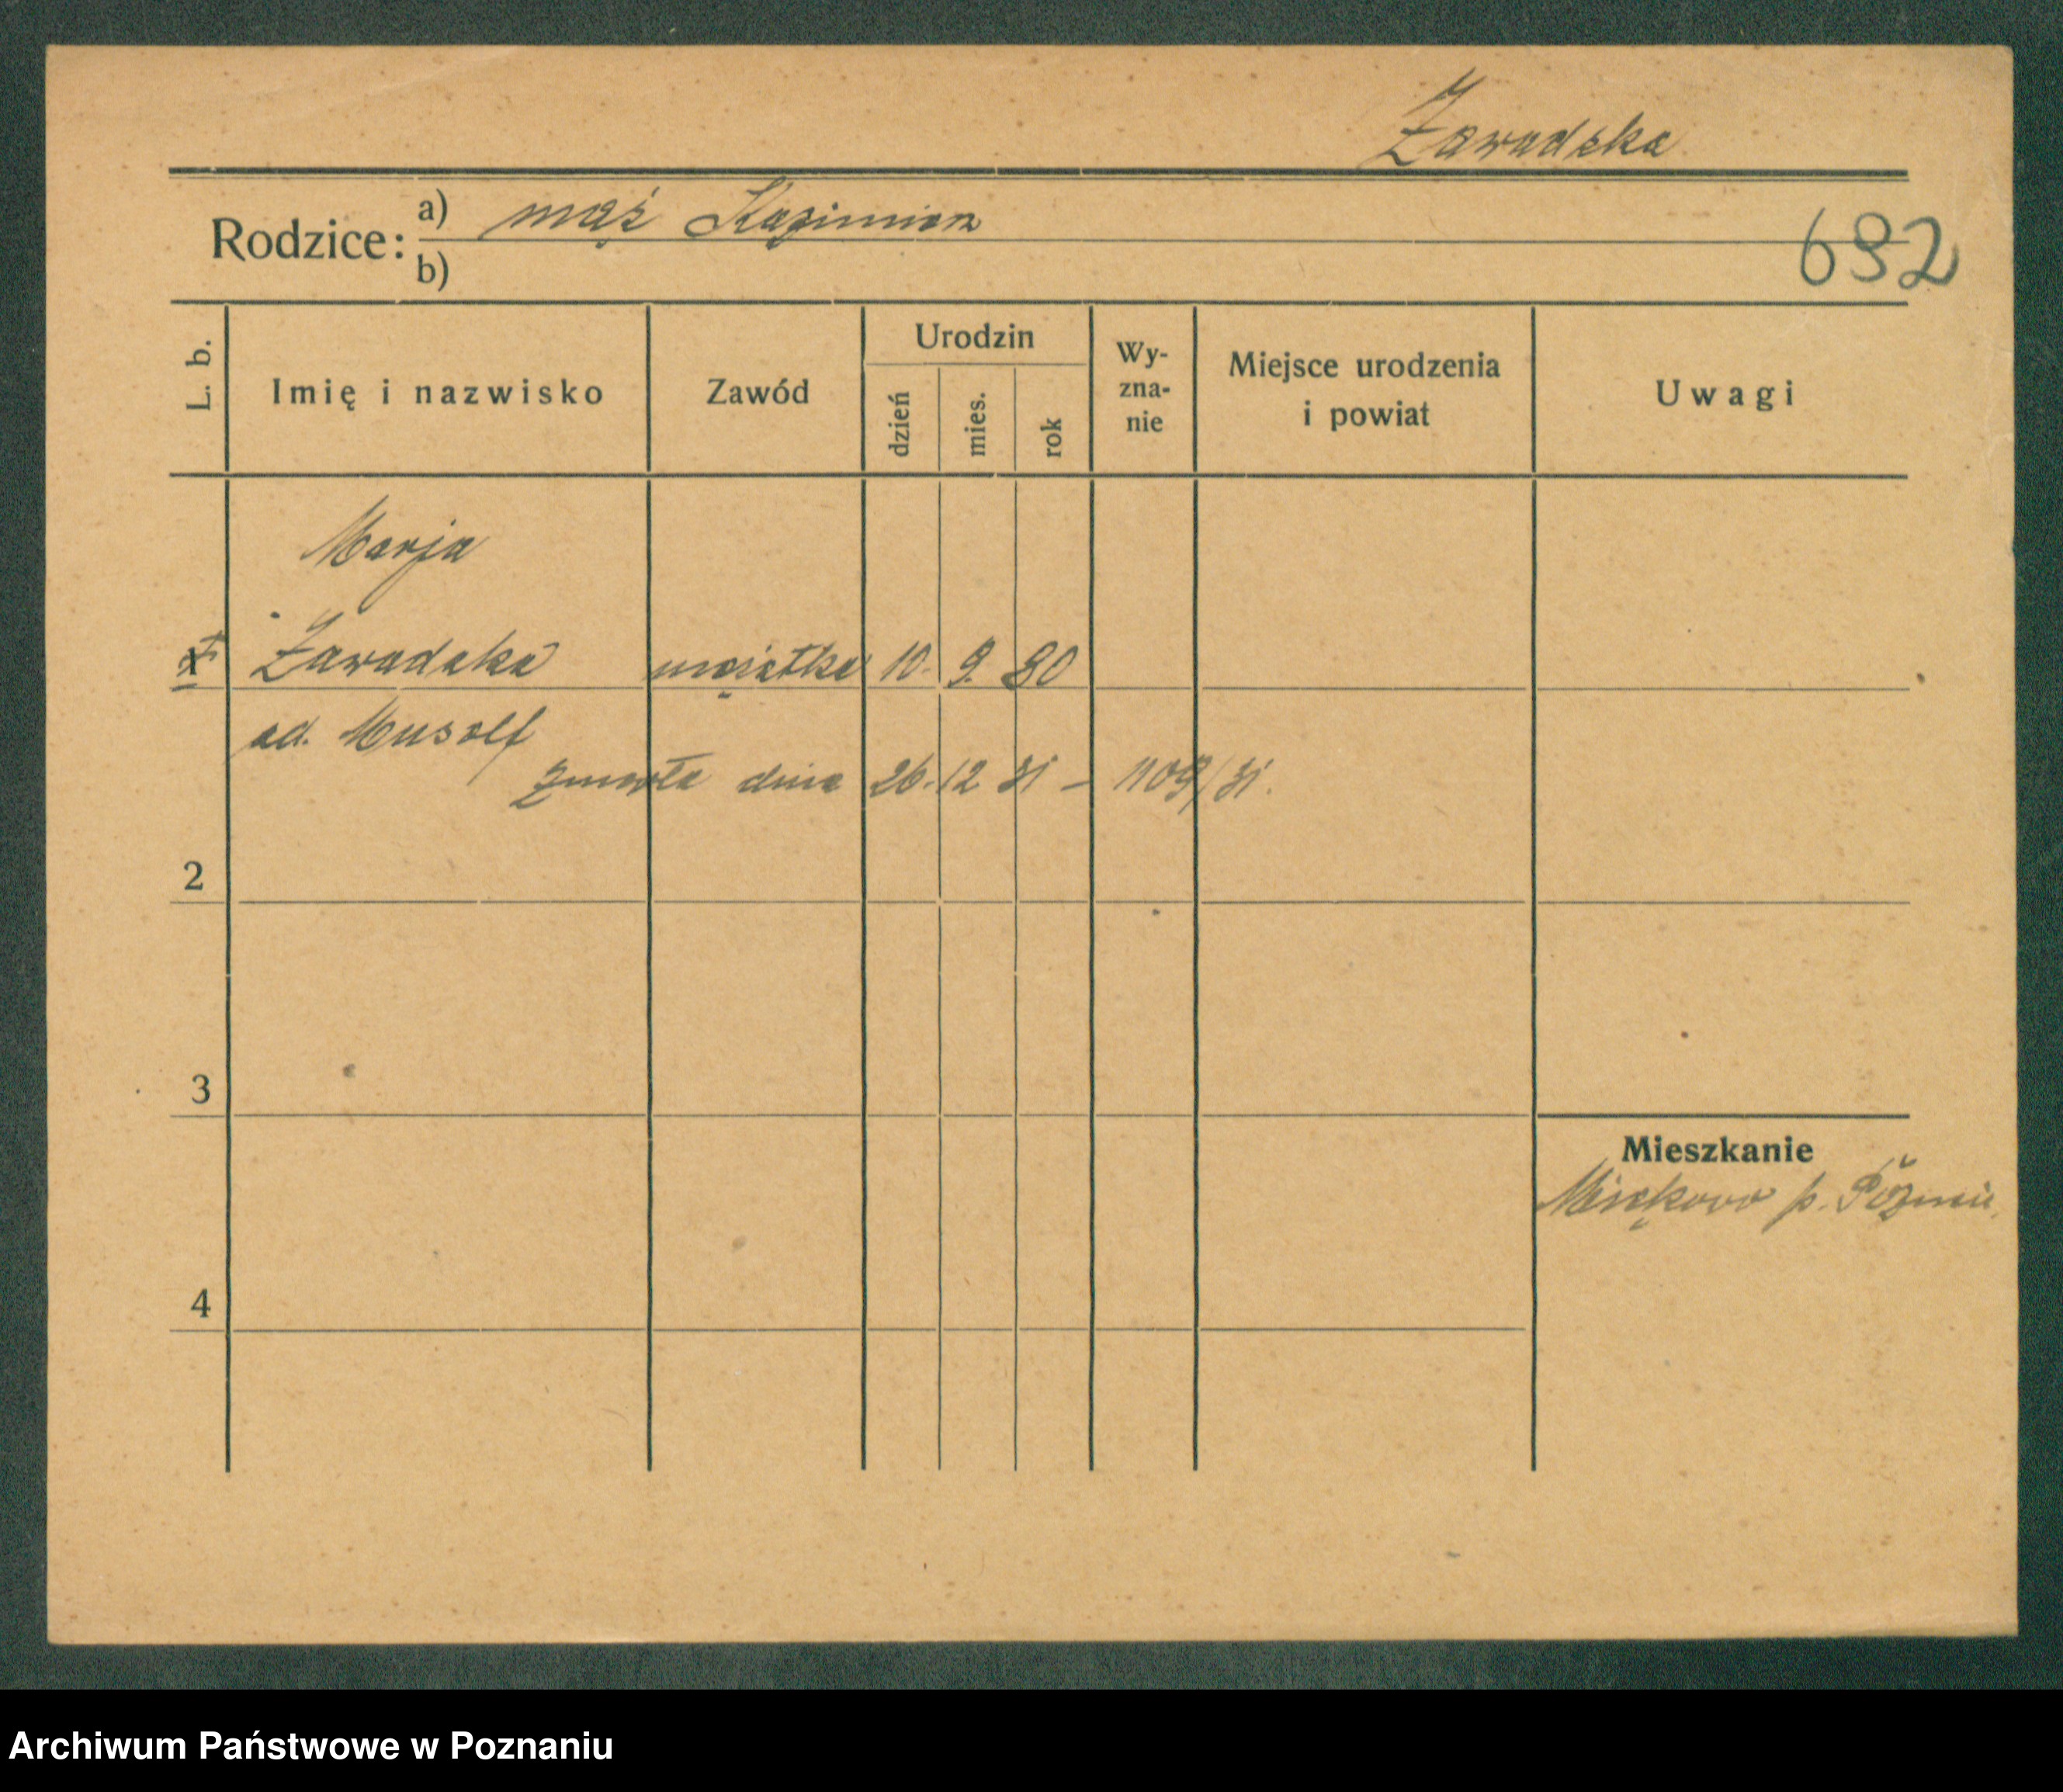 Zawadzka
Rodzice: a) mąż Kazimierz
b)
692
L. b.
Imię i nazwisko
Zawód
Urodzin
dzień
mies.
rok
Wy-
zna-
nie
Miejsce urodzenia
i powiat
Uwagi
Marja
1 Zawadzka mężatka 10. 9. 80
od. Musolf
zmarła dnia 26. 12 31 – 1109/31.
2
3
Mieszkanie
Miękowo p. Poznań
4
Archiwum Państwowe w Poznaniu